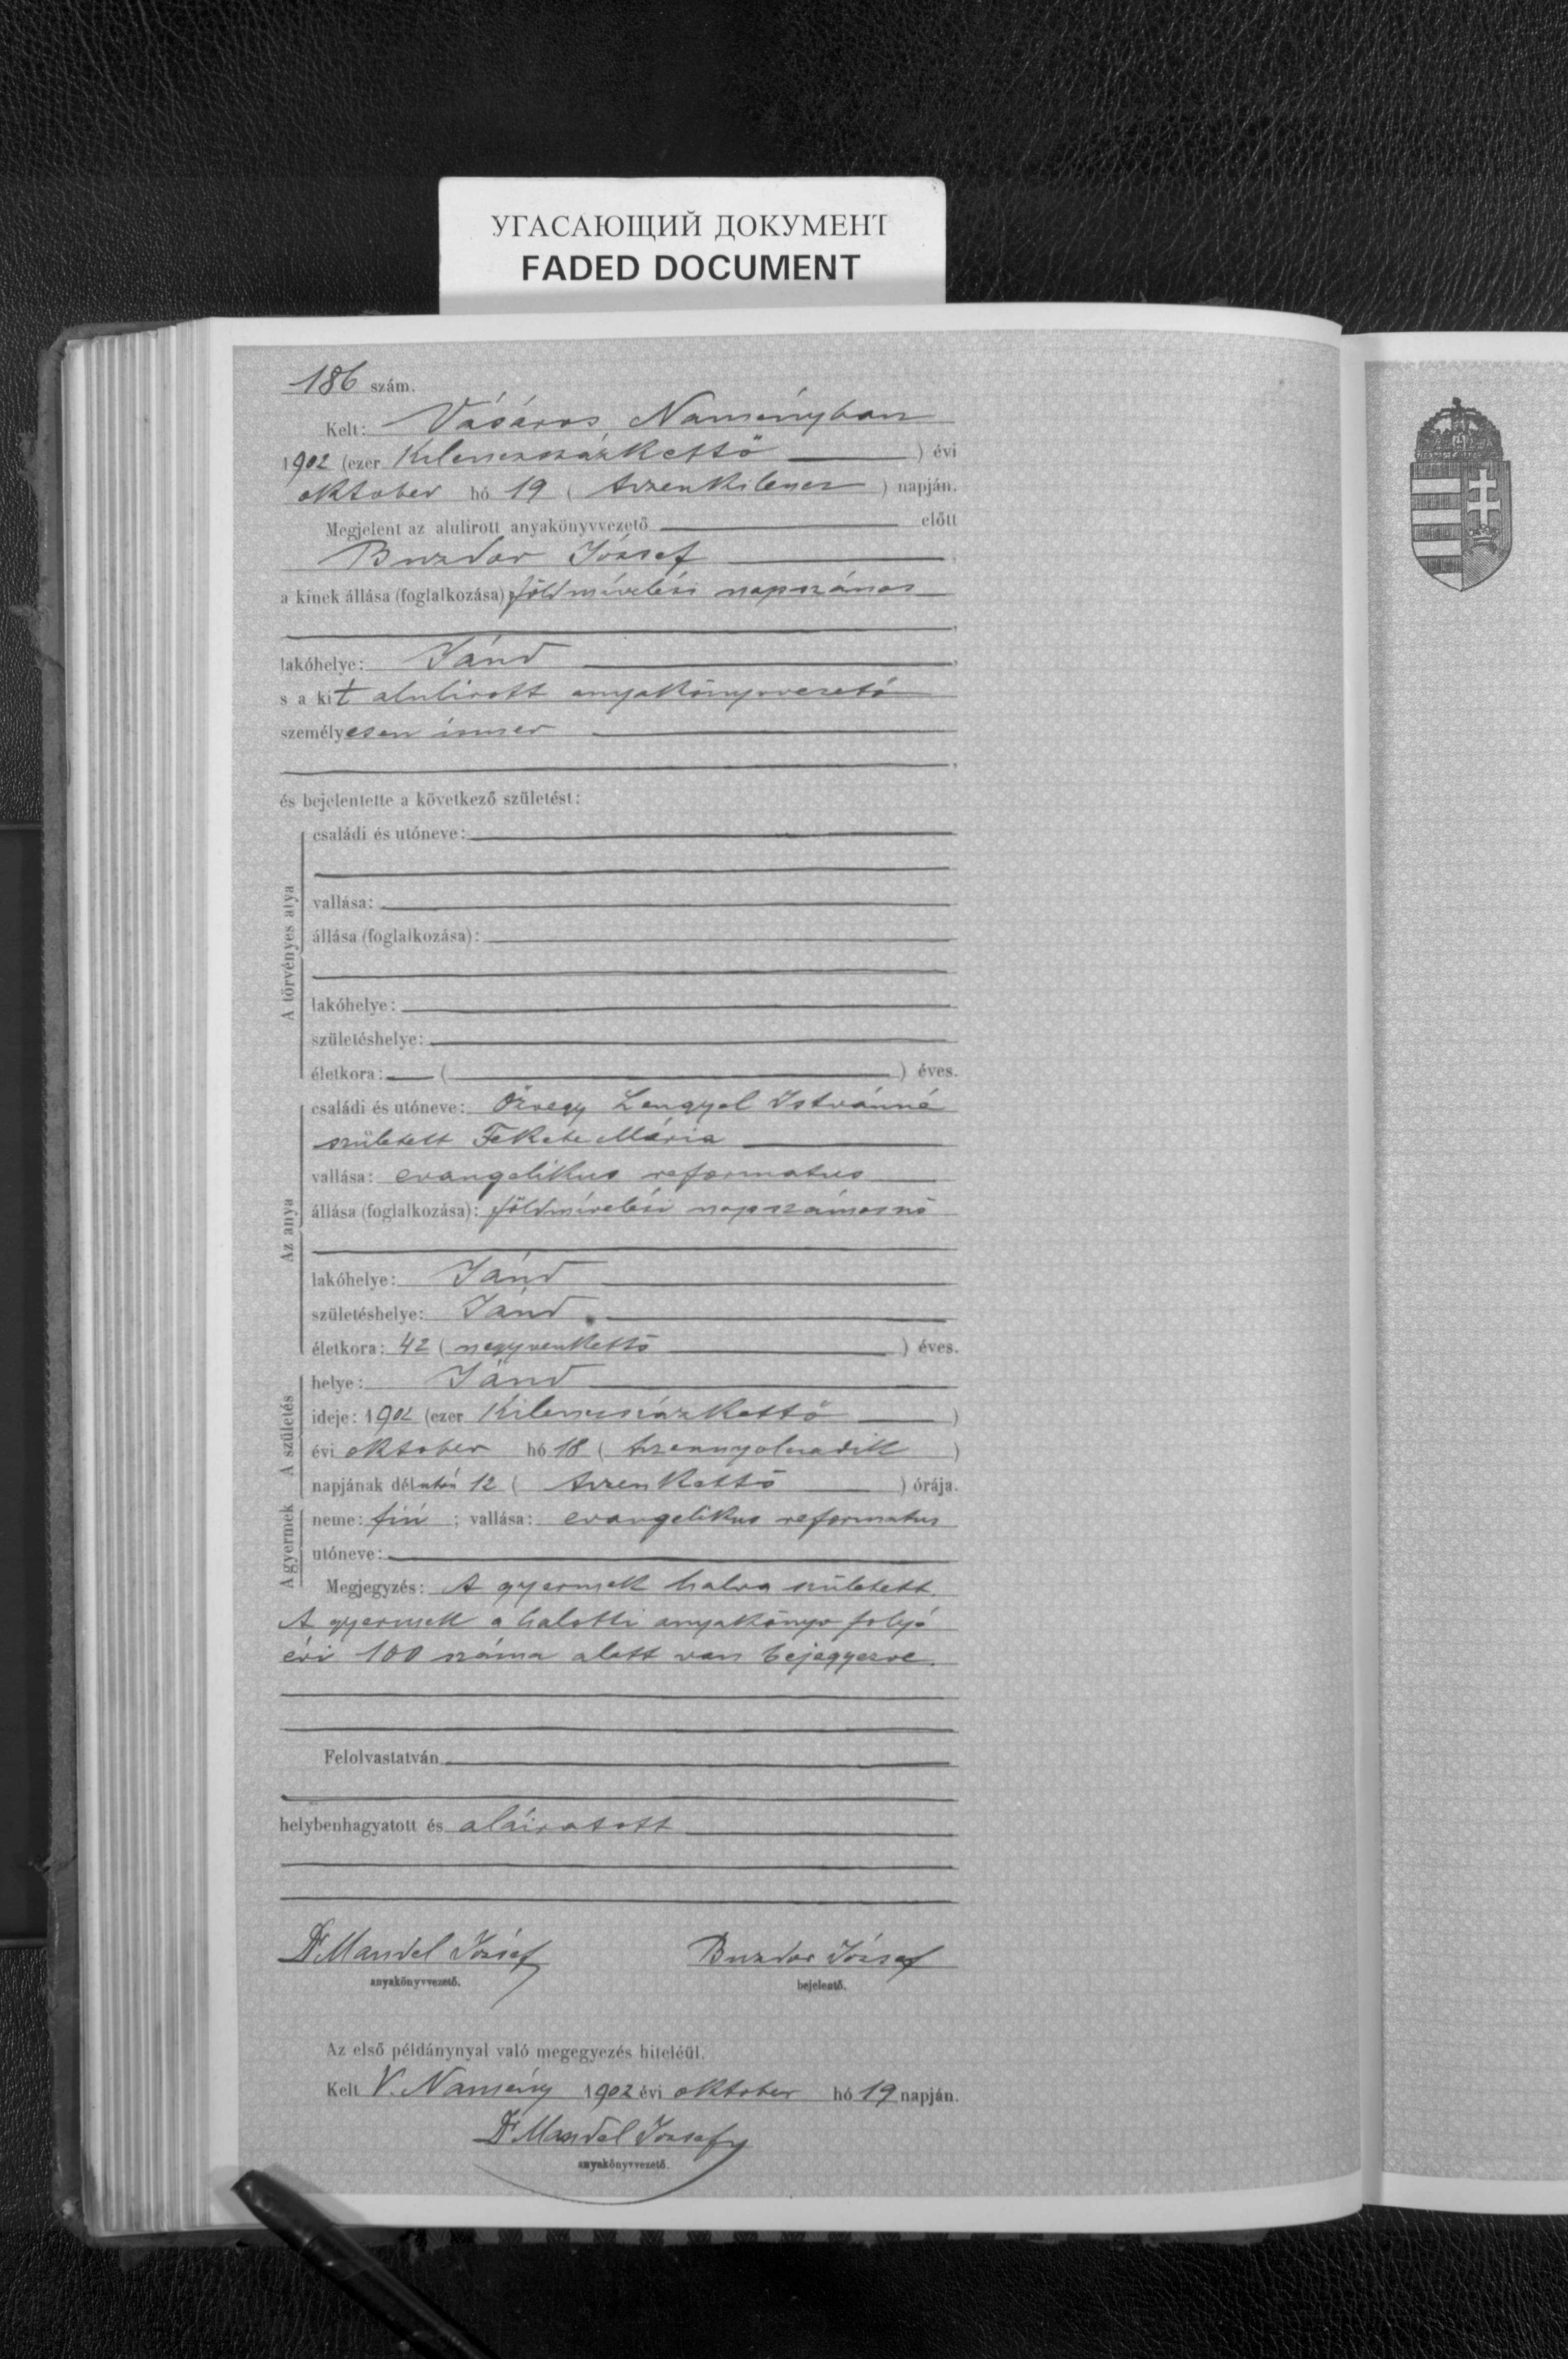 УГАСАЮЩИЙ ДОКУМЕНТ
FADED DOCUMENT
186 szám.
Kelt: Vásáros Naményban
1902 (ezer kilenczszázkettő) évi
oktober hó 19 (tizenkilencz) napján.
Megjelent az alulirott anyakönyvvezető előtt
Buzdor József
a kinek állása (foglalkozása) földmívelési napszámos
lakóhelye: Jánd
s a kit alulirott anyakönyvvezető
személyesen ismer
és bejelentette a következő születést:
A törvényes atya
családi és utóneve:
vallása:
állása (foglalkozása):
lakóhelye:
születéshelye:
életkora: ( ) éves.
Az anya
családi és utóneve: Özvegy Lengyel Istvánné
született Fekete Mária
vallása: evangelikus reformatus
állása (foglalkozása): földmívelési napszámosnő
lakóhelye: Jánd
születéshelye: Jánd
életkora: 42 (negyvenkettő) éves.
A születés
helye: Jánd
ideje: 1902 (ezer kilenczszázkettő)
évi oktober hó 18 (tizennyolczadik)
napjának délután 12 (tizenkettő) órája.
A gyermek
neme: fiú; vallása: evangelikus reformatus
utóneve:
Megjegyzés: A gyermek halva született.
A gyermek a halotti anyakönyv folyó
évi 100 száma alatt van bejegyezve.
Felolvastatván
helybenhagyatott és aláiratott
Dr Mandel József Buzdor József
anyakönyvvezető. bejelentő.
Az első példánynyal való megegyezés hiteléül.
Kelt V. Namény 1902 évi oktober hó 19 napján.
Dr Mandel József
anyakönyvvezető.